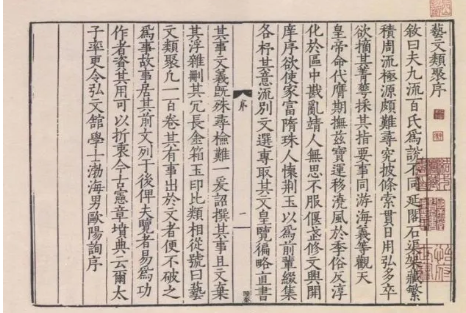 藝文類聚序
敘曰夫九流百氏為說不同延閣石渠架藏繁
積周流極源頗難尋究披條索貫日用弘多卒
欲摘其菁華採其指要事同游海義等觀天
皇帝命代膺期撫茲寶運移澆風於季俗反淳
化於區中戡亂靖人無思不服偃武修文興開
庠序欲使家富隋珠人懷荊玉以為前輩綴集
各杼其意流別文選專取其文皇覽徧略直書
其事文義既殊尋檢難一爰詔撰其事且文棄
其浮雜刪其冗長金箱玉印比類相從號曰藝
文類聚凡一百卷其有事出於文者便不破之
為事故事居其前文列于後俾夫覽者易為功
作者資其用可以折衷今古憲章墳典云爾太
子率更令弘文館學士渤海男歐陽詢序
序
一